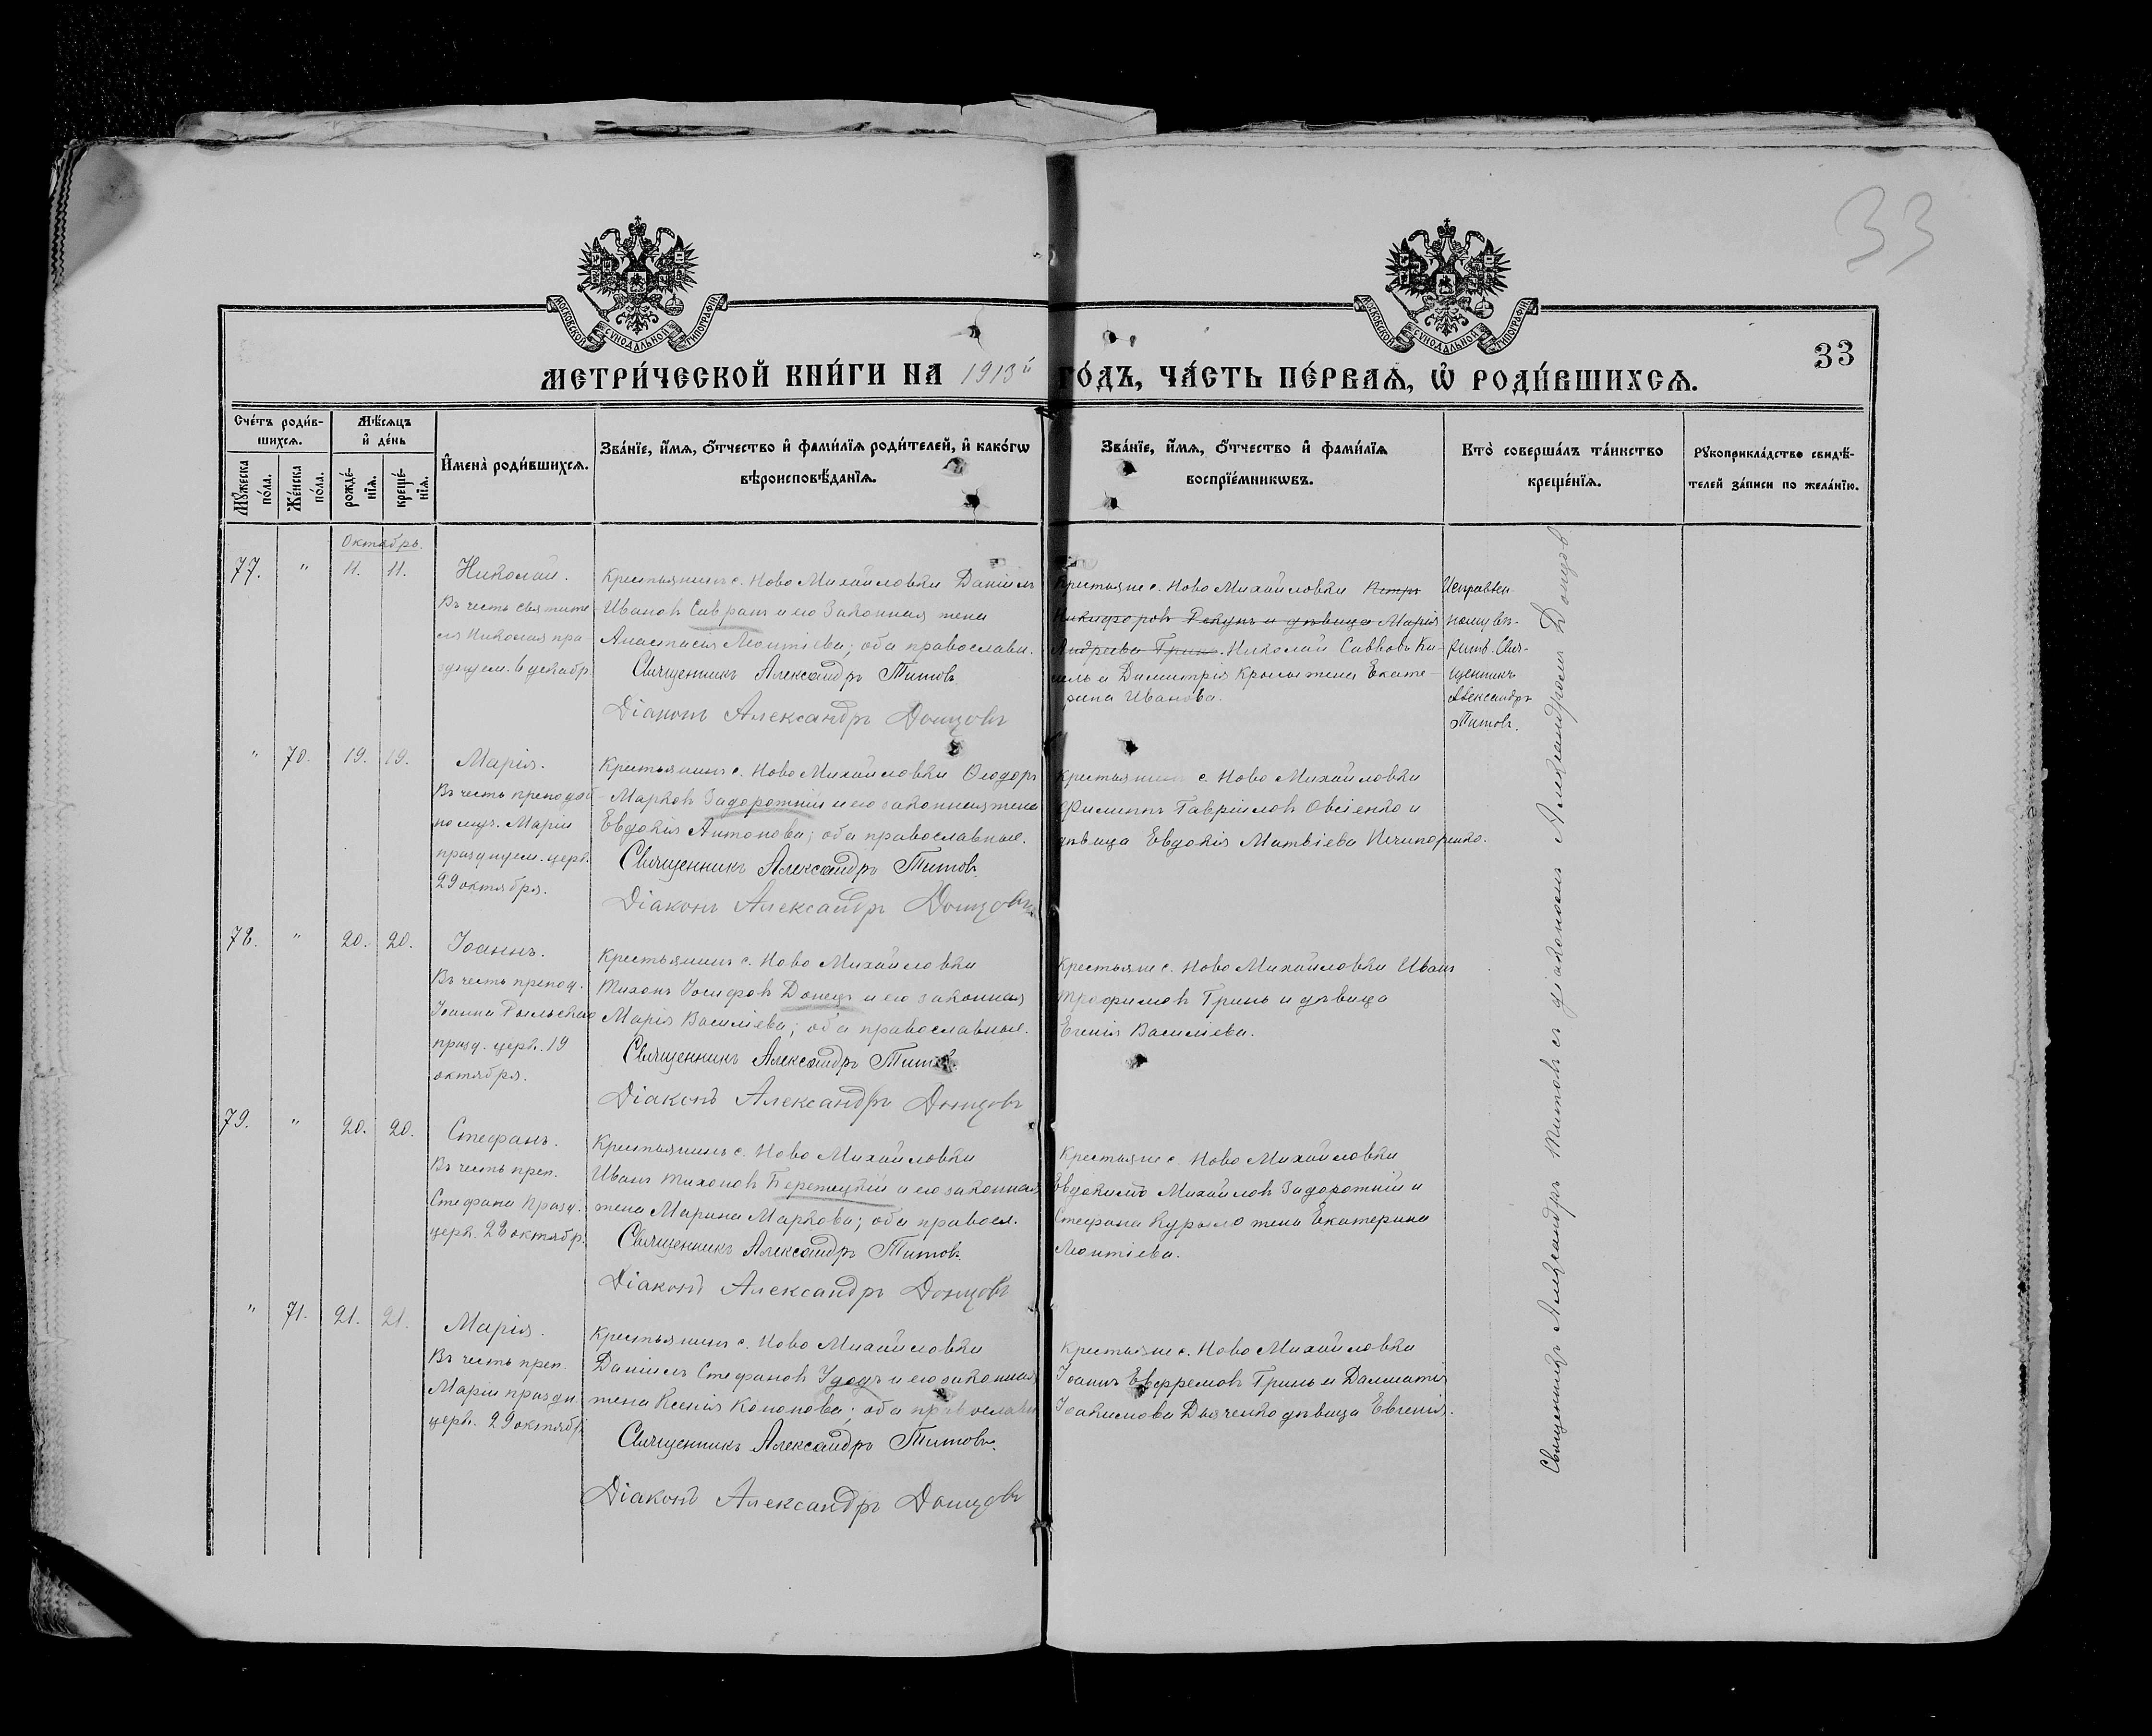 33
МОСКОВСКОЙ СУНОДАЛЬНОЙ ТИПОГРАФІИ
МОСКОВСКОЙ СУНОДАЛЬНОЙ ТИПОГРАФІИ
33
МЕТРИ́ЧЕСКОЙ КНИ́ГИ НА 1913й ГО́ДЪ, ЧА́СТЬ ПЕ́РВАѦ, Ѡ҆ РОДИ́ВШИХСѦ.
Сче́тъ роди́в-
шихсѧ.
Мѣ́сѧцъ
и҆ де́нь
Мꙋ́жеска
по́ла.
Же́нска
по́ла.
рожде́-
нїѧ.
креще́-
нїѧ.
И҆мена̀ роди́вшихсѧ.
Зва́нїе, и҆́мѧ, ѻ҆́тчество и҆ фами́лїѧ роди́телей, и҆ како́гѡ
вѣроисповѣ́данїѧ.
Зва́нїе, и҆́мѧ, ѻ҆́тчество и҆ фами́лїѧ
воспрїе́мникѡвъ.
Кто̀ соверша́лъ та́инство
креще́нїѧ.
Рꙋкоприкла́дство свидѣ́-
телей за́писи по жела́нїю.
Октябрь.
77. " 11. 11. Николай.
Въ честь святите
ля Николая пра
зднуем. 6 декабр.
Крестьянинъ с. Ново Михайловки Даніилъ
Ивановъ Савранъ и его Законная жена
Анастасія Леонтіева; оба православн.
Священникъ Александръ Титовъ.
Діаконъ Александръ Донцовъ
Крестьяне с. Ново Михайловки Петръ
Никифоровъ и дѣвица Марія
Андреева Гринь. Николай Савовъ Ки-
сель и Димитрія жена Екате-
рина Иванова.
Священникъ
Александръ
Титовъ.
" 70. 19. 19. Марія.
Въ честь преподоб
номуч. Маріи
празднуем. церк.
29 октября.
Крестьянинъ с. Ново Михайловки Ѳеодоръ
Марковъ Задорожній и его законная жена
Евдокія Антонова; оба православные.
Священникъ Александръ Титовъ.
Діаконъ Александръ Донцовъ
Крестьянинъ с. Ново Михайловки
Филиппъ Гавріиловъ Овсіенко и
дѣвица Евдокія Матвіева Нечипоренко.
78. " 20. 20. Іоаннъ.
Въ честь препод.
Іоанна Рыльскаго
празд. церк. 19
октября.
Крестьянинъ с. Ново Михайловки
Тихонъ Іосифовъ Донецъ и его законная
Марія Василіева; оба православные.
Священникъ Александръ Титовъ.
Діаконъ Александръ Донцовъ
Крестьяне с. Ново Михайловки Иванъ
Трофимовъ Гринь и дѣвица
Евгенія Василіева.
79. " 20. 20. Стефанъ.
Въ честь преп.
Стефана Празд.
церк. 28 октябр.
Крестьянинъ с. Ново Михайловки
Иванъ Тихоновъ Бережецкій и его законная
жена Марина Маркова; оба правосл.
Священникъ Александръ Титовъ.
Діаконъ Александръ Донцовъ
Крестьяне с. Ново Михайловки
Евдокимъ Михайловъ Задорожній и
Стефана Курыло жена Екатерина
Леонтіева.
" 71. 21. 21. Марія.
Въ честь преп.
Маріи праздн.
церк. 29 октябр.
Крестьянинъ с. Ново Михайловки
Даніилъ Стефановъ Удодъ и его законная
жена Ксенія Кононова; оба православн
Священникъ Александръ Титовъ.
Діаконъ Александръ Донцовъ
Крестьяне с. Ново Михайловки
Іоаннъ Евфремовъ Гринь и
Іоакимова Дьяченко дѣвица Евгенія.
Священникъ Александръ Титовъ съ діакономъ Александромъ Донцовъ